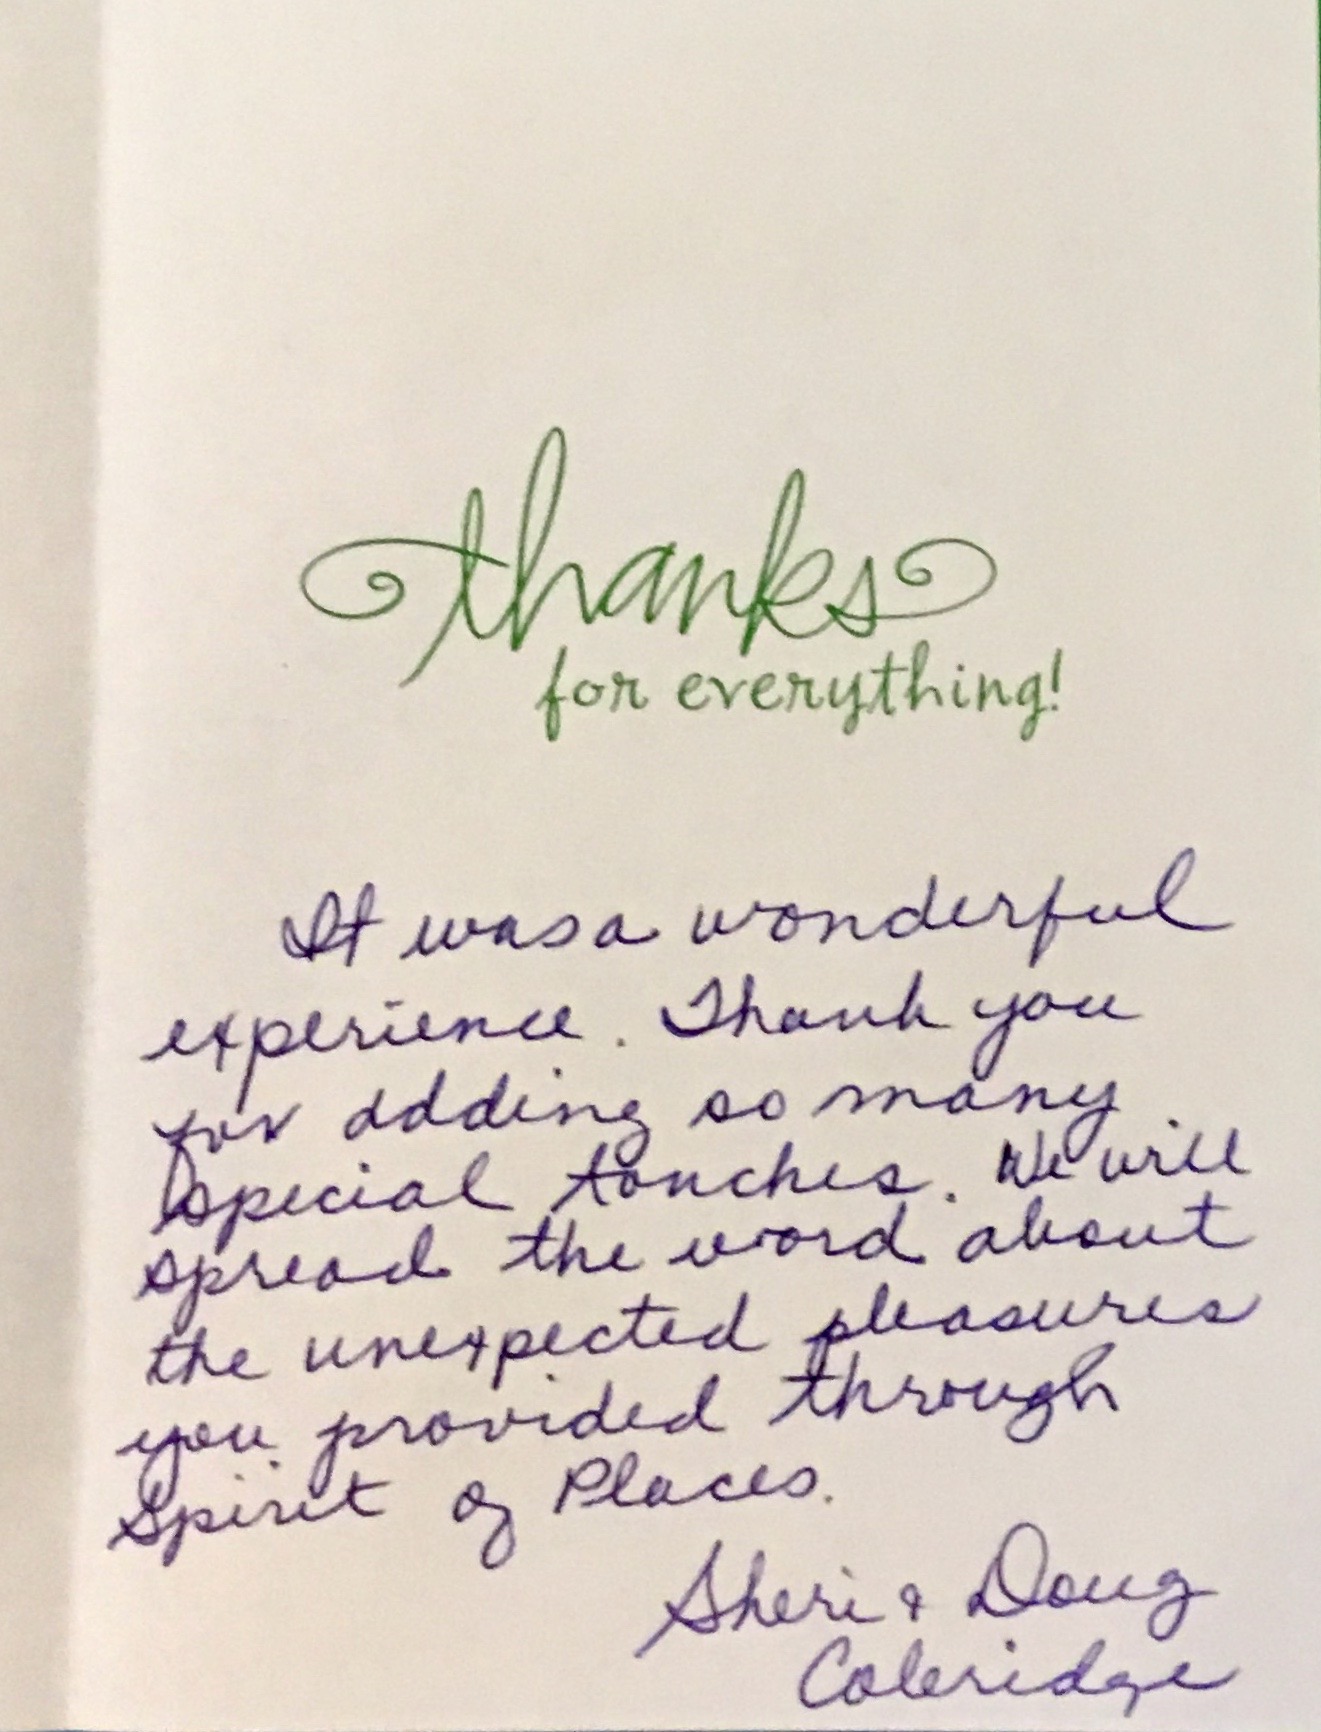 thanks
for everything!
It was a wonderful
experience. Thank you
for adding so many
special touches. We will
spread the word about
the unexpected pleasures
you provided through
Spirit of Places.
Sheri & Doug
Coleridge